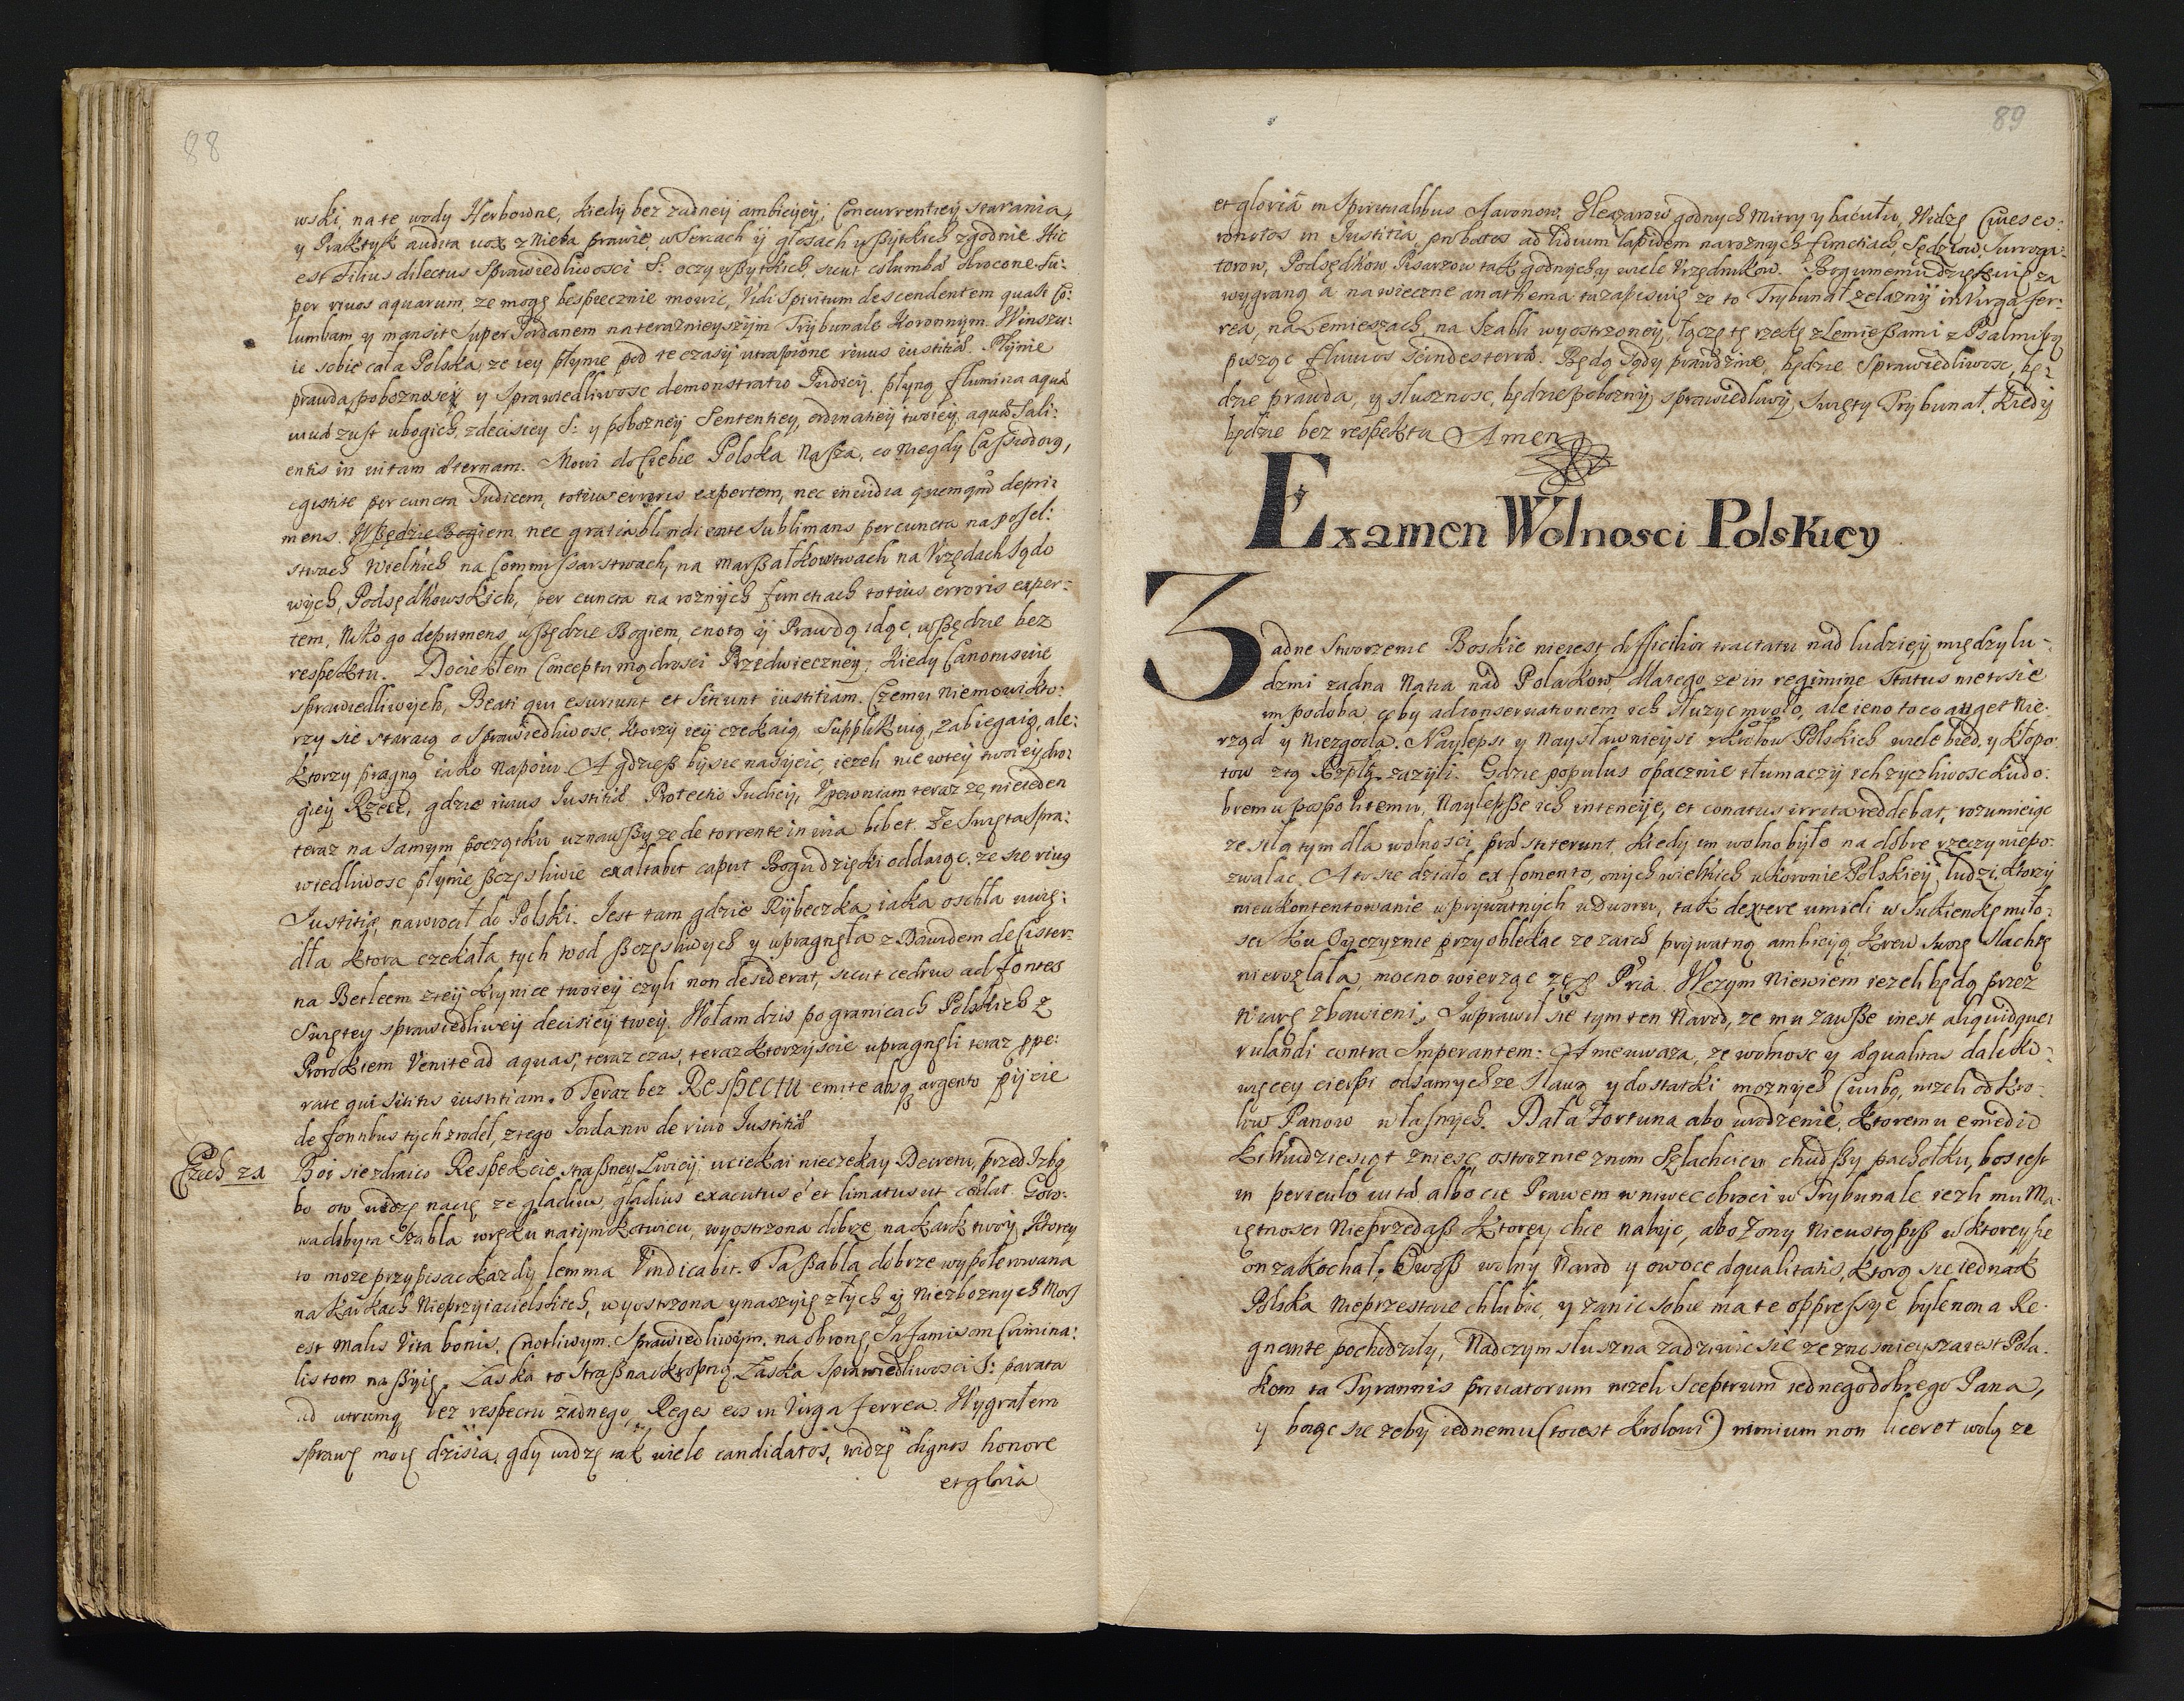 88
wski, na te wody Herbowne, kiedy bez zadneij ambicijeij, Concurrentieij starania,
y Praktyk audita vox z Nieba prawie, w Sercach ij głosach wßytkich zgodnie. Hic
est Filius dilectus Sprawiedliwosci S: oczy wßytkich, sicut columbæ obrocone su:
per rivos aquarum, ze mogę bespiecznie mowic, Vidi Spiritum descendentem quasi Co:
lumbam y mansit Super Jordanem na terazniejyszijm Trijbunale Koronnym. Winszu:
ie sobie cała Polska, ze iey płynie pod te czasij utrapione rivus iustitiæ. Płijnie
prawda, poboznosc y Sprawiedliwosc demonstratio Iudicij. płyną flumina aquæ
vivæ z ust ubogich, z decisiey S: y pobozney Sententiey, ordinatieij twoieij, aquæ Sali:
entis in vitam æternam. Mowi do Ciebie Polska Naßa, co Niegdy Cassiodorg,
egistite per cuncta Iudicem, totius erroris expertem, nec invidia quemquam depri:
mens. Wßędzie Bogiem, nec gratia blandiente sublimans per cuncta na posel:
stwach Wielkich na Commissarstwach, na Marßałkowstwach na Urzędach Sądo
wych, Podsędkowskich, per cuncta na roznijch functiach totius erroris exper:
tem, Niko go deprimens, wßędzie Bogiem, cnotą ij Prawdą idąc, wßędzie bez
respektu. Dociekłem Conceptu mądrosci Przedwieczneij, kiedy Canonisuie
sprawiedliwych, Beati qui esuriunt et Sitiunt iustitiam. Czemu nie mowi kto:
rzy sie staraią o sprawiedliwosc, ktorzy ieij czekaią, Supplikuią, zabiegaią, ale:
ktorzy pragną iako Napoiu. A gdzieß bij sie napijcic, iezeli nie w teij twoieij dro:
gieij Rzece, gdzie rivus Iustitiæ Protectio Iudicij, Upewniam teraz ze nieieden
teraz na samym początku uznawßy ze de torrente in via bibet. Ze Święta Spra:
wiedliwosc płynie ßczęsliwie exaltabit caput Bogu dzięki oddaiąc, ze sie rivg
Iustitiæ, nawrocił do Polski. Iest tam gdzie Rijbeczka iaka oschła uwię:
dła ktora czekała tych wod ßczęsliwych y upragnęła z Dawidem de Cister:
na Betleem z teij krynice twoieij czyli non desiderat, sicut cedrus ad fontes
Swiętey sprawiedliweij decisieij tweij. Wołam dzis po granicach Polskich z
Prorokiem Venite ad aquas, teraz czas, teraz ktorzyscie upragnęli teraz ppe:
rate qui sititis iustitiam. Teraz bez Respectu emite absq argento pijcie
de fontibus tych zrodeł, z tego Iordanu de rivo Iustitiæ
Czech z ſ Boi sie zdraico Respekcie straßney Lwicij uciekai nieczekay Decretu, przed Izbą
bo oto widzę na cię ze gladius, gladius exacutus e et limatus ut cædat. Goto:
wa dobyta Szabla w ręku na tijm kotwicu, wyostrzona dobrze na kark twoij, ktorey
to moze przypisac kazdy lemma Vindicabit. Ta ßabla dobrze wypolerowana
na karkach Nieprzyiacielskich, wyostrzona y na szyię złych ij niezboznych Mors
est malis Vita bonis, Cnotliwym, Sprawiedliwym, na obronę, Infamisom Crimina:
listom na ßyię. Laska to straßna okropną Laska Sprawiedliwosci S: parata
ad utrumq bez respectu zadnego, Reges eos in Virga ferrea. Wygrałem
sprawę moię dzisia, gdy widzę tak wiele candidatos, widzę dignos honore
et gloria
89
et gloriâ in Spiritualibus Aaronow, Eleazarow godnych Mitry y baculu, Widzę Cives co:
ronatos in Iustitia, probatos ad lidium lapidem na roznych functiach, Sędziow, Surroga:
torow, Podsędkow Pisarzow tak godnych y wiele Urzędnikow. Bogu memu dziękuię za
wygraną a na wieczne anathema ta zapisuię ze to Trybunał zelaznij in Virga fer:
rea, na Lemieszach, na Szabli wyostrzoneij, łączę tę rzekę z Lemießami z Psalmistą
pisząc fluvios scindes terræ. Będą sądy prawdziwe, będzie Sprawiedliwosc, bę:
dzie prawda, y słusznosc, będzie poboznij sprawiedliwij Święty Trybunał, kiedy
będzie bez respektu Amen
Examen Wolnosci Polskiey
Zadne Stworzenie Boskie nieiest difficilior tractatu nad ludzi, y między lu:
dzmi zadna Natia nad Polakow, dlatego ze in regimine Status nie to sie
im podoba, co by ad conservationem ich słuzyc mogło, ale ieno to co auget Nie:
rząd y Niezgoda. Naylepsi y Naysławnieysi z krolow Polskich wiele bied y kłopo:
tow z tą Rzpltą zazyli. Gdzie populus opacznie tłumaczy ich zyczliwosc ku do:
bremu pospolitemu, Naylepße ich intencije, et conatus irrita reddebat, rozumieiąc
ze siłą tym dla wolnosci præstiterunt, kiedy im wolno było na dobre rzeczy niepo:
zwalac. A to sie działo ex fomento, onych wielkich w Koronie Polskieij ludzi, ktorzy
nieukontentowanie w prywatnych u Dworu, tak dextere umieli w Sukienkę miło:
sci ku Ojczyznie przyoblekac ze za ich prijwatną ambiciję krew swoię Slachtę
nierozlała, mocno wierząc ze pro Pria. W czym Niewiem iezeli będą przez
Wiarę zbawieni, Iwprawił sie tym ten Narod, ze mu zawße inest aliquid que:
rulandi contra Imperantem: A nieuwaza, ze wolnosc y æqualitas daleko:
więcey cierpi od samych ze Sławą y dostatki moznych Civibq, nizeli od kro:
low Panow własnych. Dała Fortuna abo urodzenie, ktoremu e medio
kilkudziesiąt zniesc, ostroznie z nim Szlachcicu chudßy pachołku, bos iest
in periculo vitæ albo cie Prawem wniwec obroci w Trybunale iezli mu Ma:
iętnosci Nieprzedaß ktorey chce nabyc, abo Zony Nieustąpiß w ktorey sie
on zakochał. Owoß wolny Narod y owoce æqualitatis, ktorą sie iednak
Polska Nieprzestaie chlubic, y za nic sobie ma te oppressye, byle non a Re:
gnante pochodziły, Nad czym słuszna zadziwic sie ze znosnieysza iest Pola:
kom ta Tyrannis privatorum nizeli Sceptrum iednego dobrego Pana,
y boiąc sie zeby iednemu (to iest krolowi) nimium non liceret wolą ze